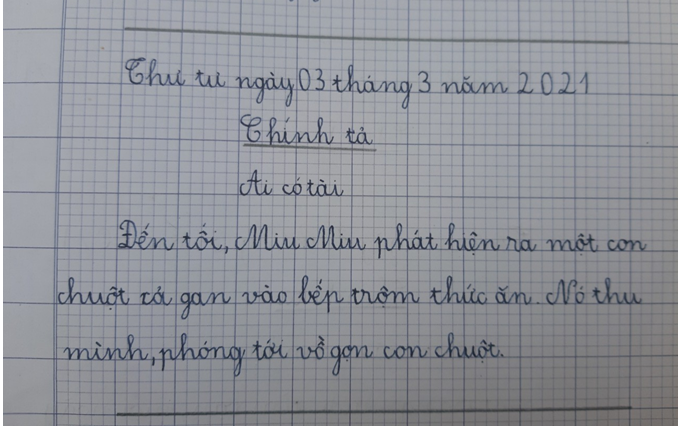 Thứ tư ngày 03 tháng 3 năm 2021
Chính tả
Ai có tài
Đến tối, Miu Miu phát hiện ra một con
chuột cả gan vào bếp trộm thức ăn. Nó thu
mình, phóng tới vồ gọn con chuột.